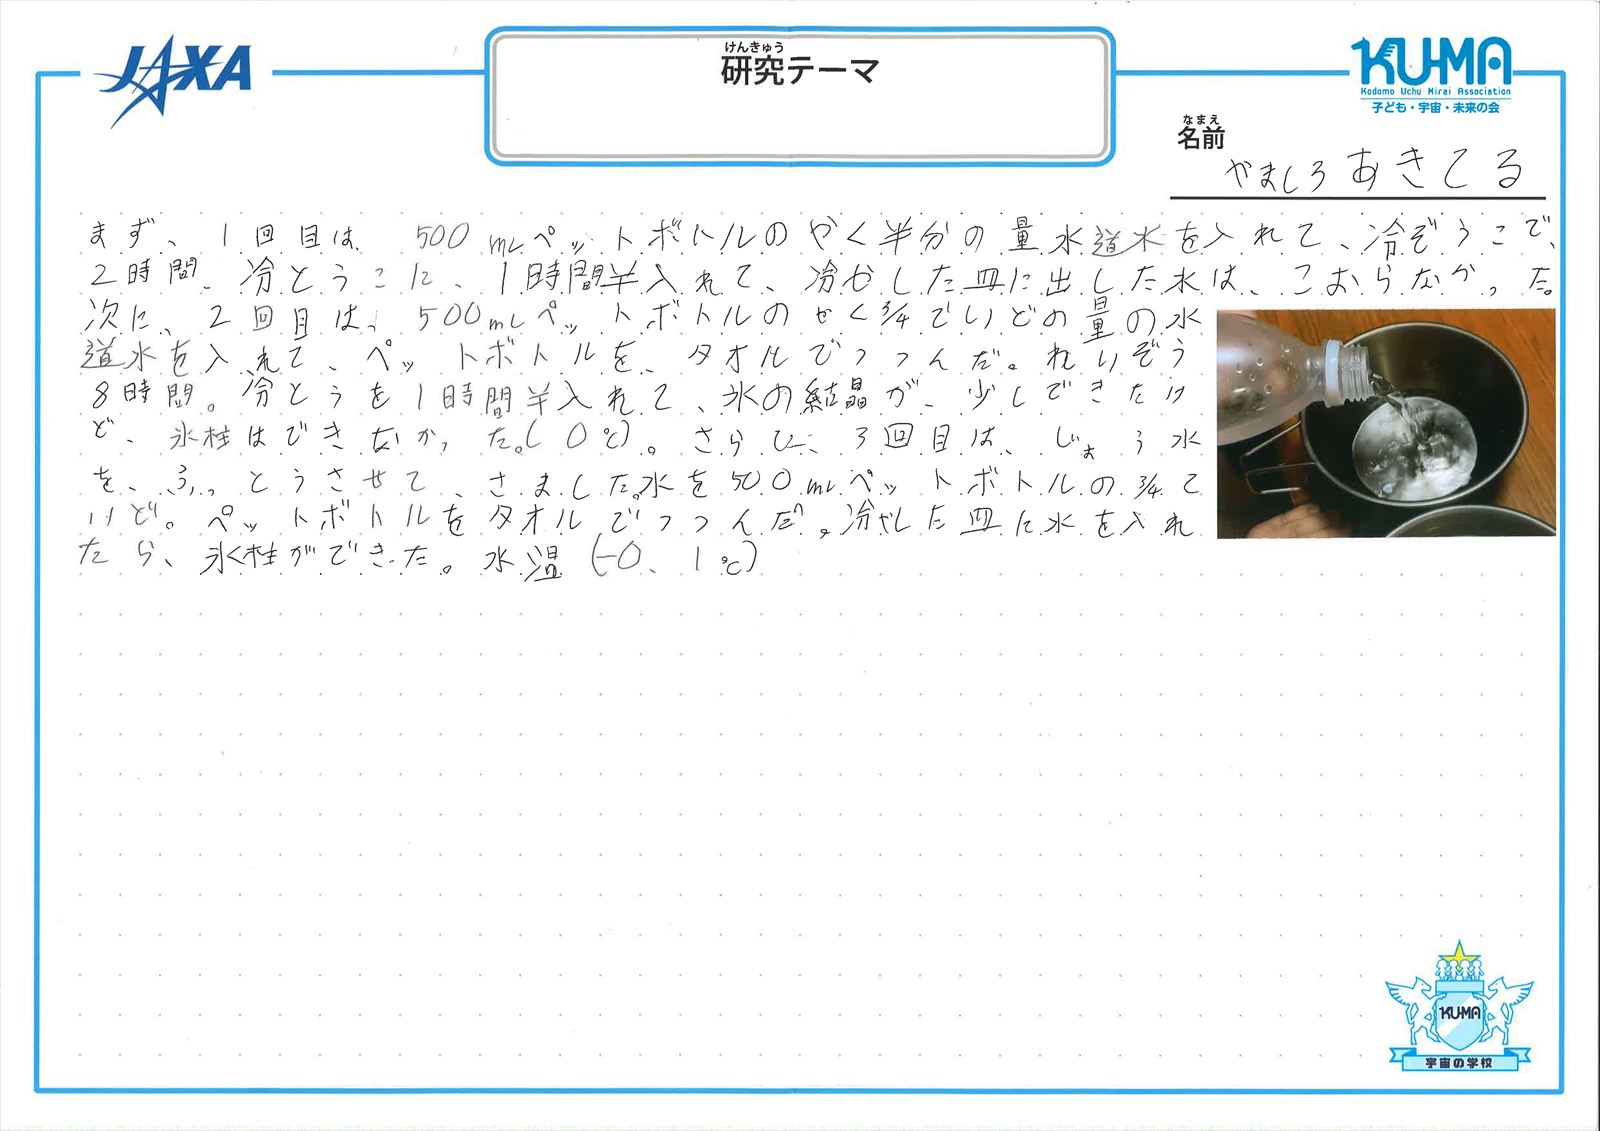 JAXA
けんきゅう
研究テーマ
KU-MA
Kodomo Uchu Mirai Association
子ども・宇宙・未来の会
なまえ
名前
やましろあきてる
まず、1回目は、500mLペットボトルのやく半分の量水道水を入れて、冷ぞうこで、
2時間、冷とうこに、1時間半入れて、冷やした皿に出した水は、こおらなかった。
次に、2回目は、500mLペットボトルのやく3/4ていどの量の水
道水を入れて、ペットボトルを、タオルでつつんだ。れいぞう
8時間。冷とうを1時間半入れて、氷の結晶が、少しできたけ
ど、氷柱はできなかった。(0℃)。さらに、3回目は、じょう水
を、ふっとうさせて、さました水を500mLペットボトルの3/4て
いど。ペットボトルをタオルでつつんだ。冷やした皿に水を入れ
たら、氷柱ができた。水温(-0、1℃)
KU-MA
宇宙の学校